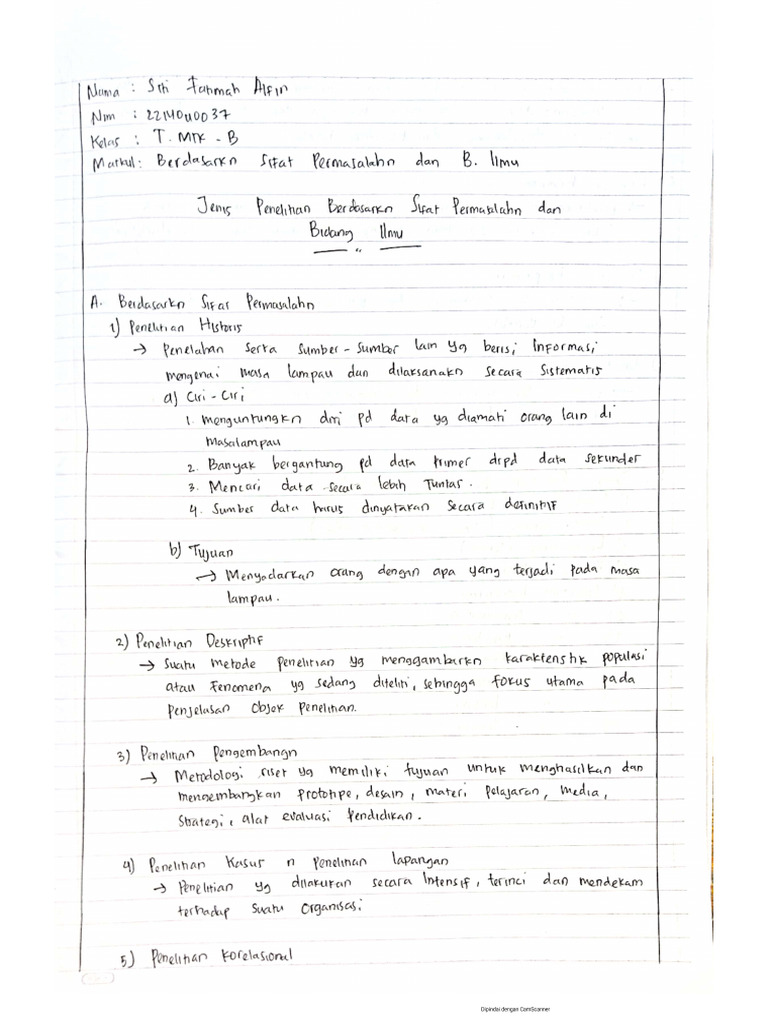 Nama : Siti Fatimah Alfin
Nim : 2214040037
Kelas : T. MTK - B
Matkul: Berdasarkn Sifat Permasalahn dan B. Ilmu
Jenis Penelitian Berdasarkn Sifat Permasalahn dan
Bidang Ilmu
A. Berdasarkn Sifat Permasalahn
1) Penelitian Historis
→ Penelahan serta sumber-sumber lain yg berisi informasi
mengenai masa lampau dan dilaksanakn secara sistematis
a) Ciri-Ciri
1. menguntungkn diri pd data yg diamati orang lain di
masalampau
2. Banyak bergantung pd data primer drpd data sekunder
3. Mencari data secara lebih Tuntas.
4. Sumber data harus dinyatakan secara definitif
b) Tujuan
→ Menyadarkan orang dengan apa yang terjadi pada masa
lampau.
2) Penelitian Deskriptif
→ Suatu metode penelitian yg menggambarkn karakteristik populasi
atau fenomena yg sedang diteliti, sehingga fokus utama pada
penjelasan objek penelitian.
3) Penelitian Pengembangn
→ Metodologi riset yg memiliki tujuan untuk menghasilkan dan
mengembangkan prototipe, desain, materi pelajaran, media,
strategi, alat evaluasi pendidikan.
4) Penelitian Kasus n Penelitian lapangan
→ Penelitian yg dilakukan secara Intensif, terinci dan mendalam
terhadap suatu organisasi
5) Penelitian Korelasional
Dipindai dengan CamScanner